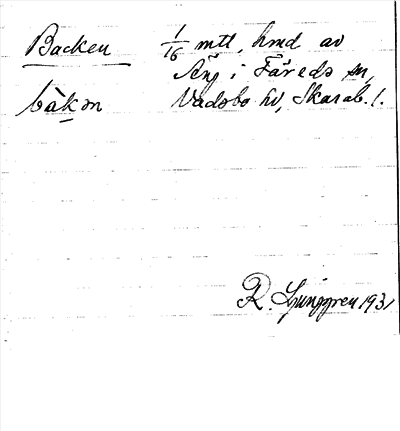 Backen 1/16 mtl, hmd av
Äng i Färeds sn,
bàkən Vadsbo hd, Skarab. l.
R. Ljunggren 1931